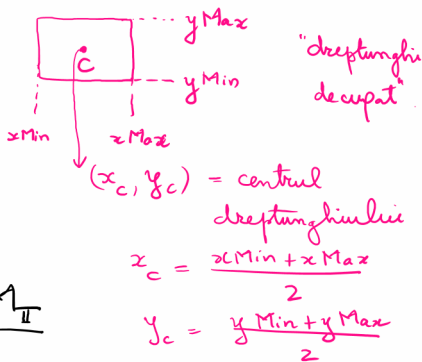 yMax
"dreptunghi
C
decupat"
yMin
xMin
xMax
(x_c, y_c) = centrul
dreptunghiului
x_c = (xMin + xMax) / 2
y_c = (yMin + yMax) / 2